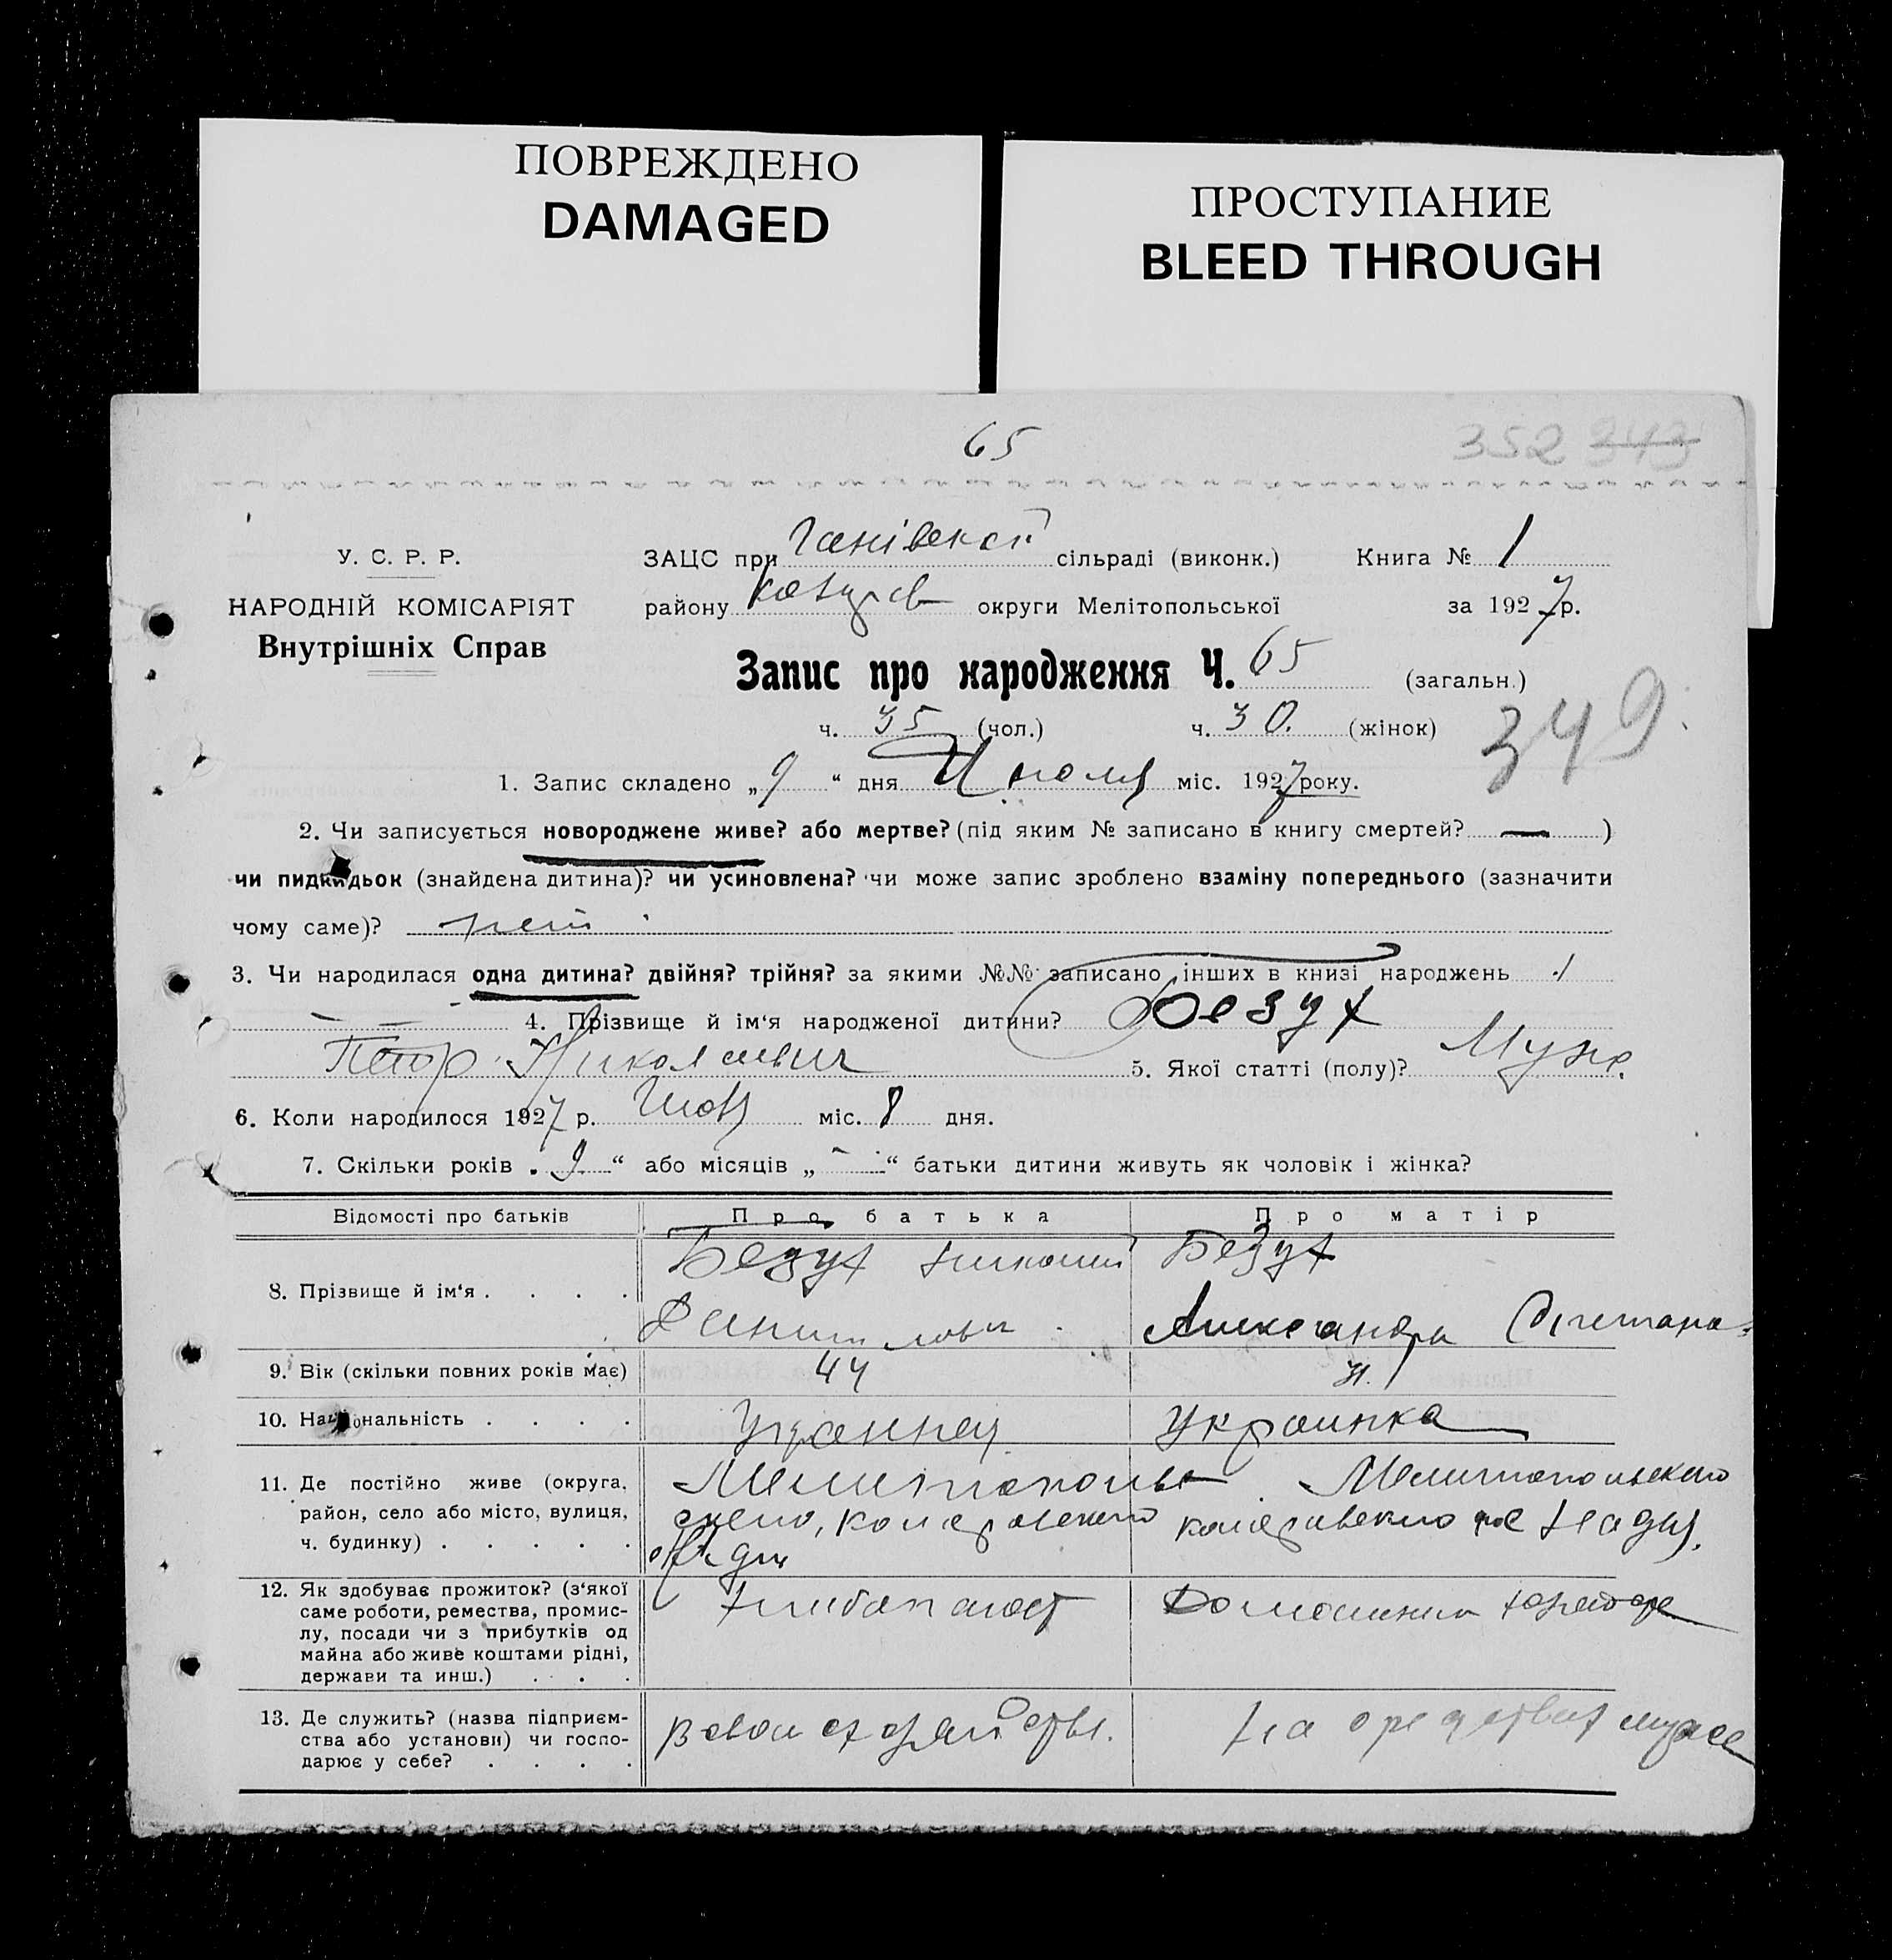 ПОВРЕЖДЕНО
DAMAGED
ПРОСТУПАНИЕ
BLEED THROUGH
65
352 343
У. С. Р. Р.
НАРОДНІЙ КОМІСАРІЯТ
Внутрішніх Справ
ЗАЦС при сільраді (виконк.) Книга № 1
району округи Мелітопольської за 1927 р.
Запис про народження Ч. 65 (загальн.)
ч. 35 (чол.) ч. 30. (жінок)
349
1. Запис складено „9“ дня Июля міс. 1927 року.
2. Чи записується новороджене живе? або мертве? (під яким № записано в книгу смертей? — )
чи пидкидьок (знайдена дитина)? чи усиновлена? чи може запис зроблено взаміну попереднього (зазначити
чому саме)? нет
3. Чи народилася одна дитина? двійня? трійня? за якими №№ записано інших в книзі народжень
4. Прізвище й ім‘я народженої дитини? Безух
Петр Николаевич 5. Якої статті (полу)? Муж.
6. Коли народилося 1927 р. міс. 8 дня.
7. Скільки років „9“ або місяців „-“ батьки дитини живуть як чоловік і жінка?
Відомості про батьків Про батька Про матір
8. Прізвище й ім‘я . . . . Безух Николай Безух
Данилович Александра
9. Вік (скільки повних років має) 44
10. Національність . . . . Украинец Украинка
11. Де постійно живе (округа, район, село або місто, вулиця, ч. будинку) . . . . . Мелитопольского
12. Як здобуває прожиток? (з‘якої саме роботи, ремества, промислу, посади чи з прибутків од майна або живе коштами рідні, держави та инш.) . . . Хлебопашест Домашним
13. Де служить? (назва підприємства або установи) чи господарює у себе? . . . . На средствах мужа